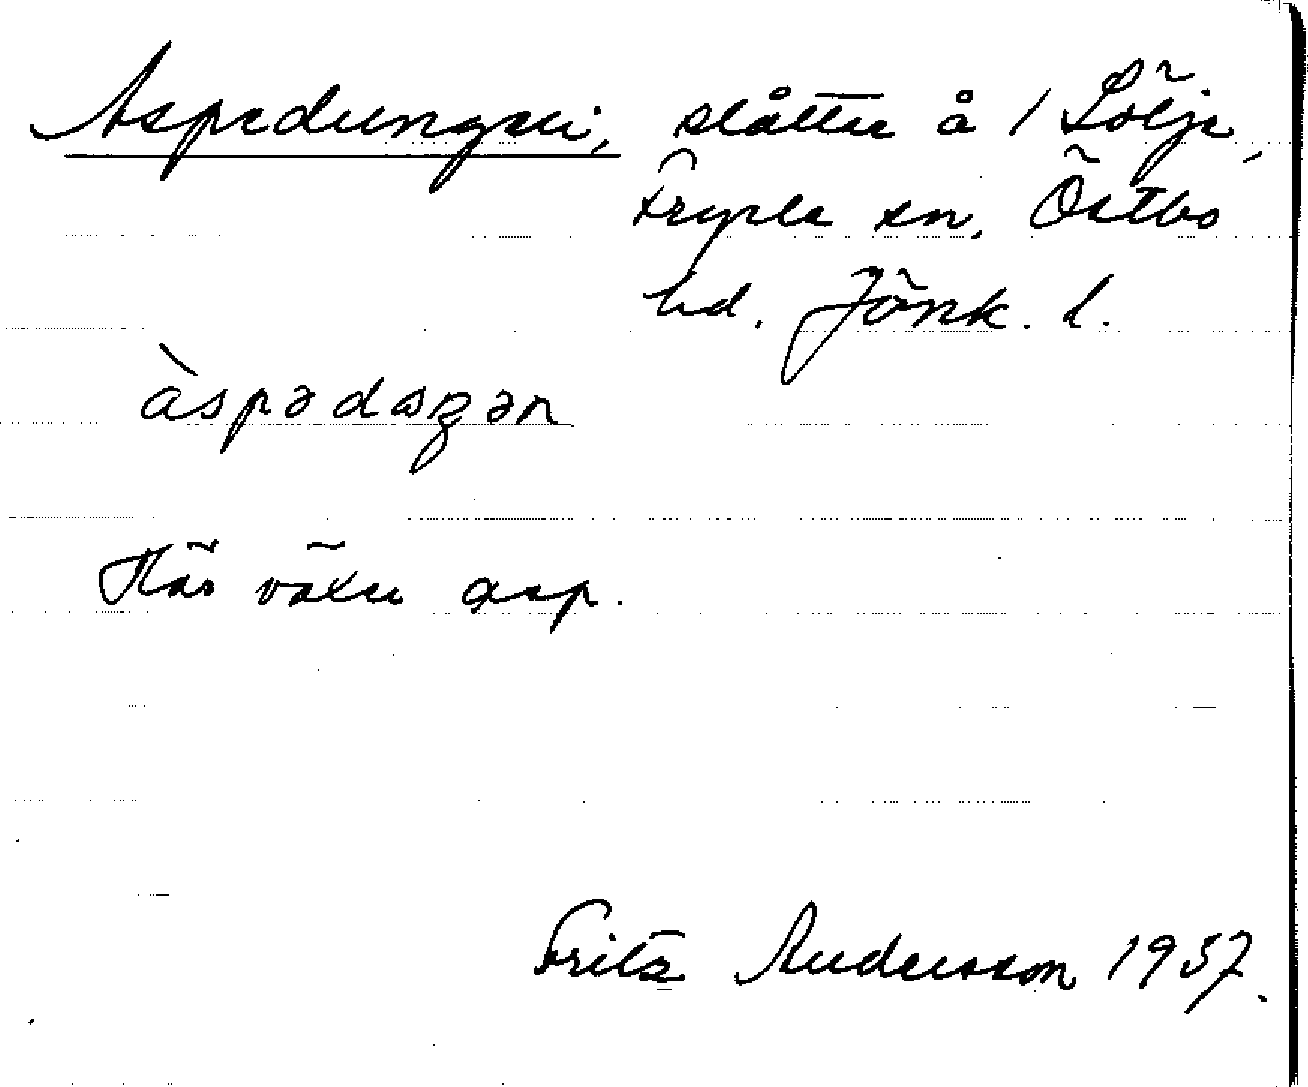 Aspedungen, slåtter å 1 Sölje,
Fryele sn, Östbo
hd. Jönk. l.
àspədɷŋən
Här växer asp.
Fritz Andersson 1957.